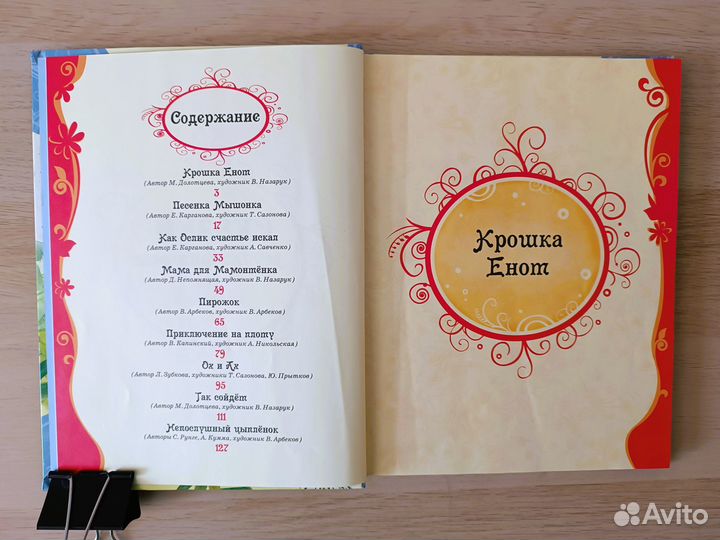 Содержание
Крошка Енот
(Автор М. Долотцева, художник В. Назарук)
3
Песенка Мышонка
(Автор Е. Карганова, художник Т. Сазонова)
17
Как Ослик счастье искал
(Автор Е. Карганова, художник А. Савченко)
33
Мама для Мамонтёнка
(Автор Д. Непомнящая, художник В. Назарук)
49
Пирожок
(Автор В. Арбеков, художник В. Арбеков)
65
Приключение на плоту
(Автор В. Капинский, художник А. Никольская)
79
Ох и Ах
(Автор Л. Зубкова, художники Т. Сазонова, Ю. Прытков)
95
Так сойдёт
(Автор М. Долотцева, художник В. Назарук)
111
Непослушный цыплёнок
(Авторы С. Рунге, А. Кумма, художник В. Арбеков)
127
Крошка
Енот
Avito